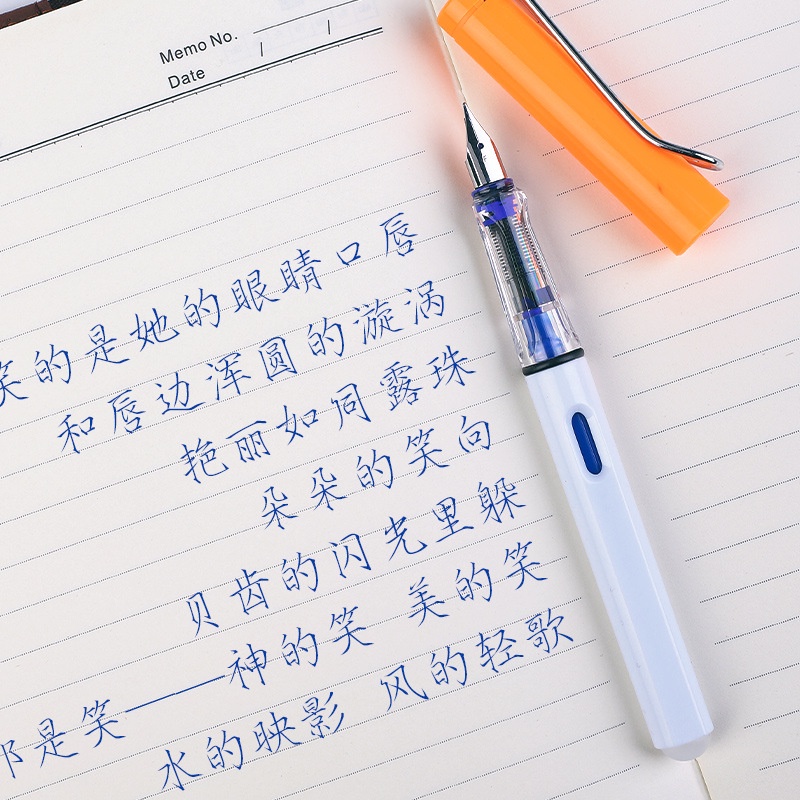 Memo No.
Date / /
笑的是她的眼睛口唇
和唇边浑圆的漩涡
艳丽如同露珠
朵朵的笑向
贝齿的闪光里躲
那是笑——神的笑 美的笑
水的映影 风的轻歌